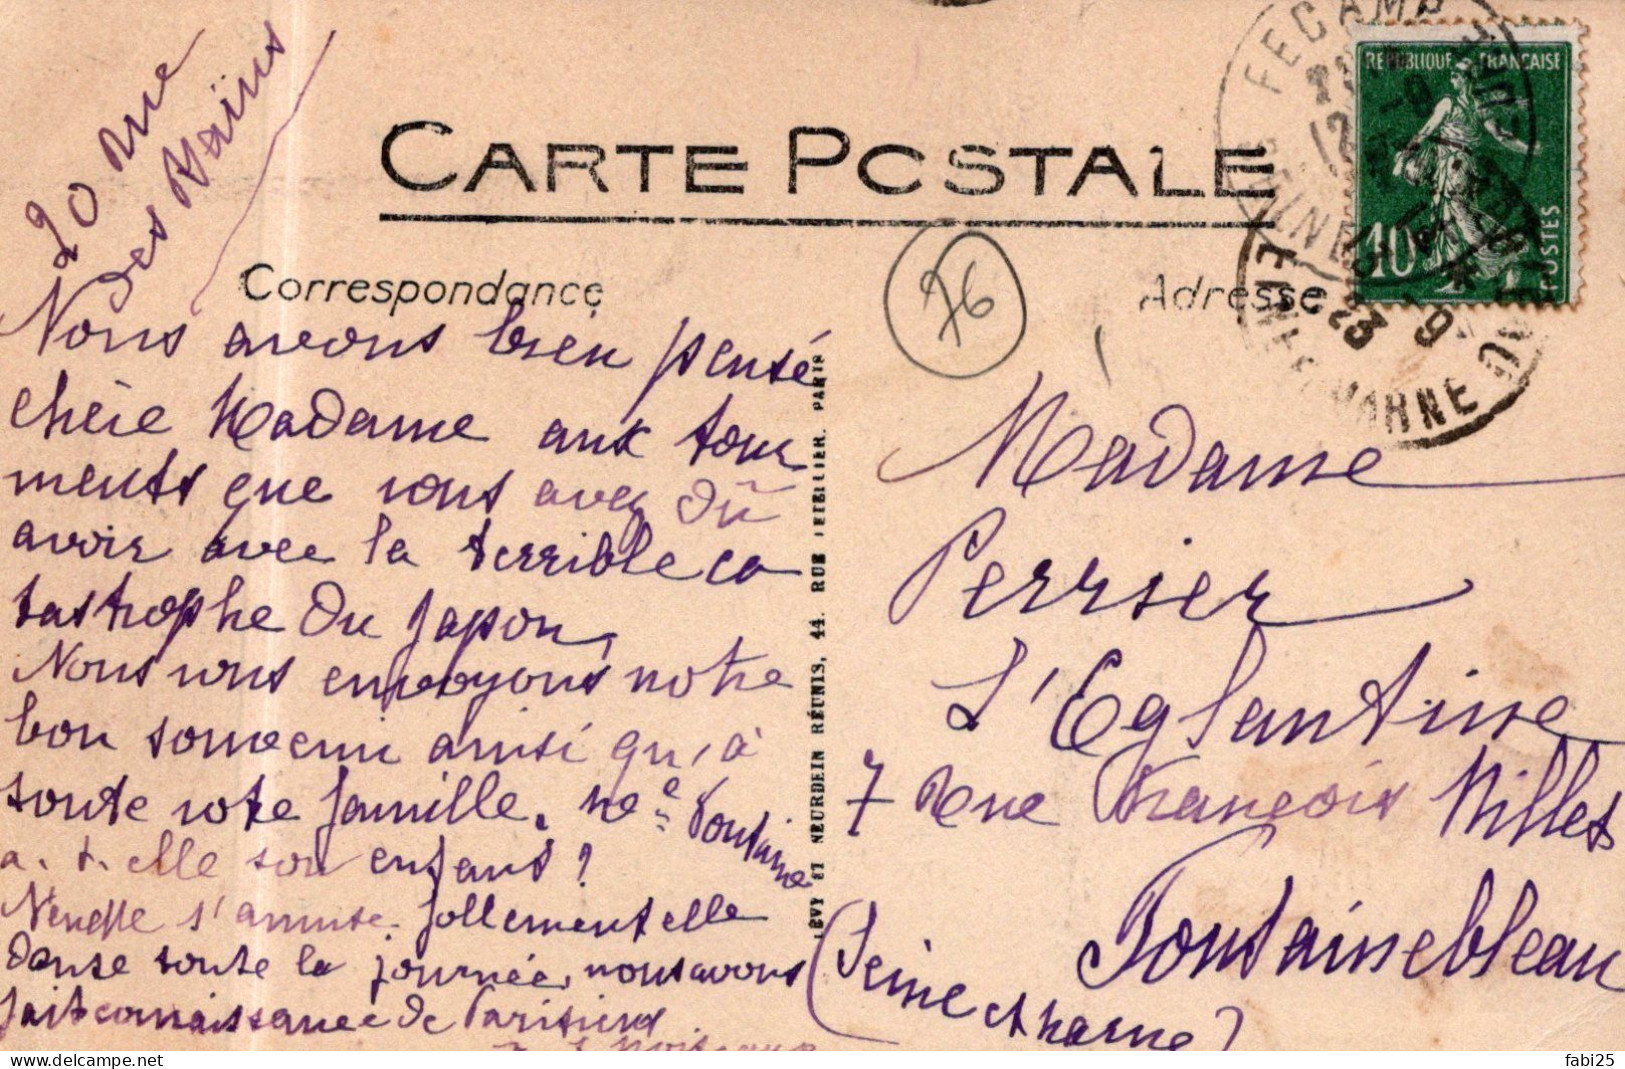 20 rue
des Bains
CARTE POSTALE
Correspondance
Adresse
76
Nous avons bien pensé
chère Madame aux tour
ments que vous avez dû
avoir avec la terrible ca
tastrophe du Japon,
Nous vous envoyons notre
bon souvenir ainsi qu'à
toute votre famille. Me Fontaine
a. t. elle son enfant ?
Nenette s'amuse follement elle
danse toute la journée, nous avons
fait connaissance de Parisiens
LÉVY ET NEURDEIN RÉUNIS, 44. RUE LETELLIER. PARIS
Madame
Perrier
L'Eglantine
7 Rue François Millet
Fontainebleau
(Seine et Marne)
FECAMP
REPUBLIQUE FRANÇAISE
10
POSTES
fabi25